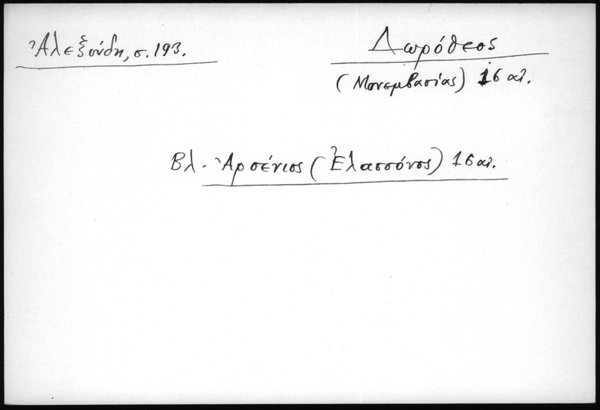 Ἀλεξούδη, σ. 193.
Δωρόθεος
(Μονεμβασίας) 16 αἰ.
Βλ. Ἀρσένιος (Ἐλασσόνος) 16 αἰ.